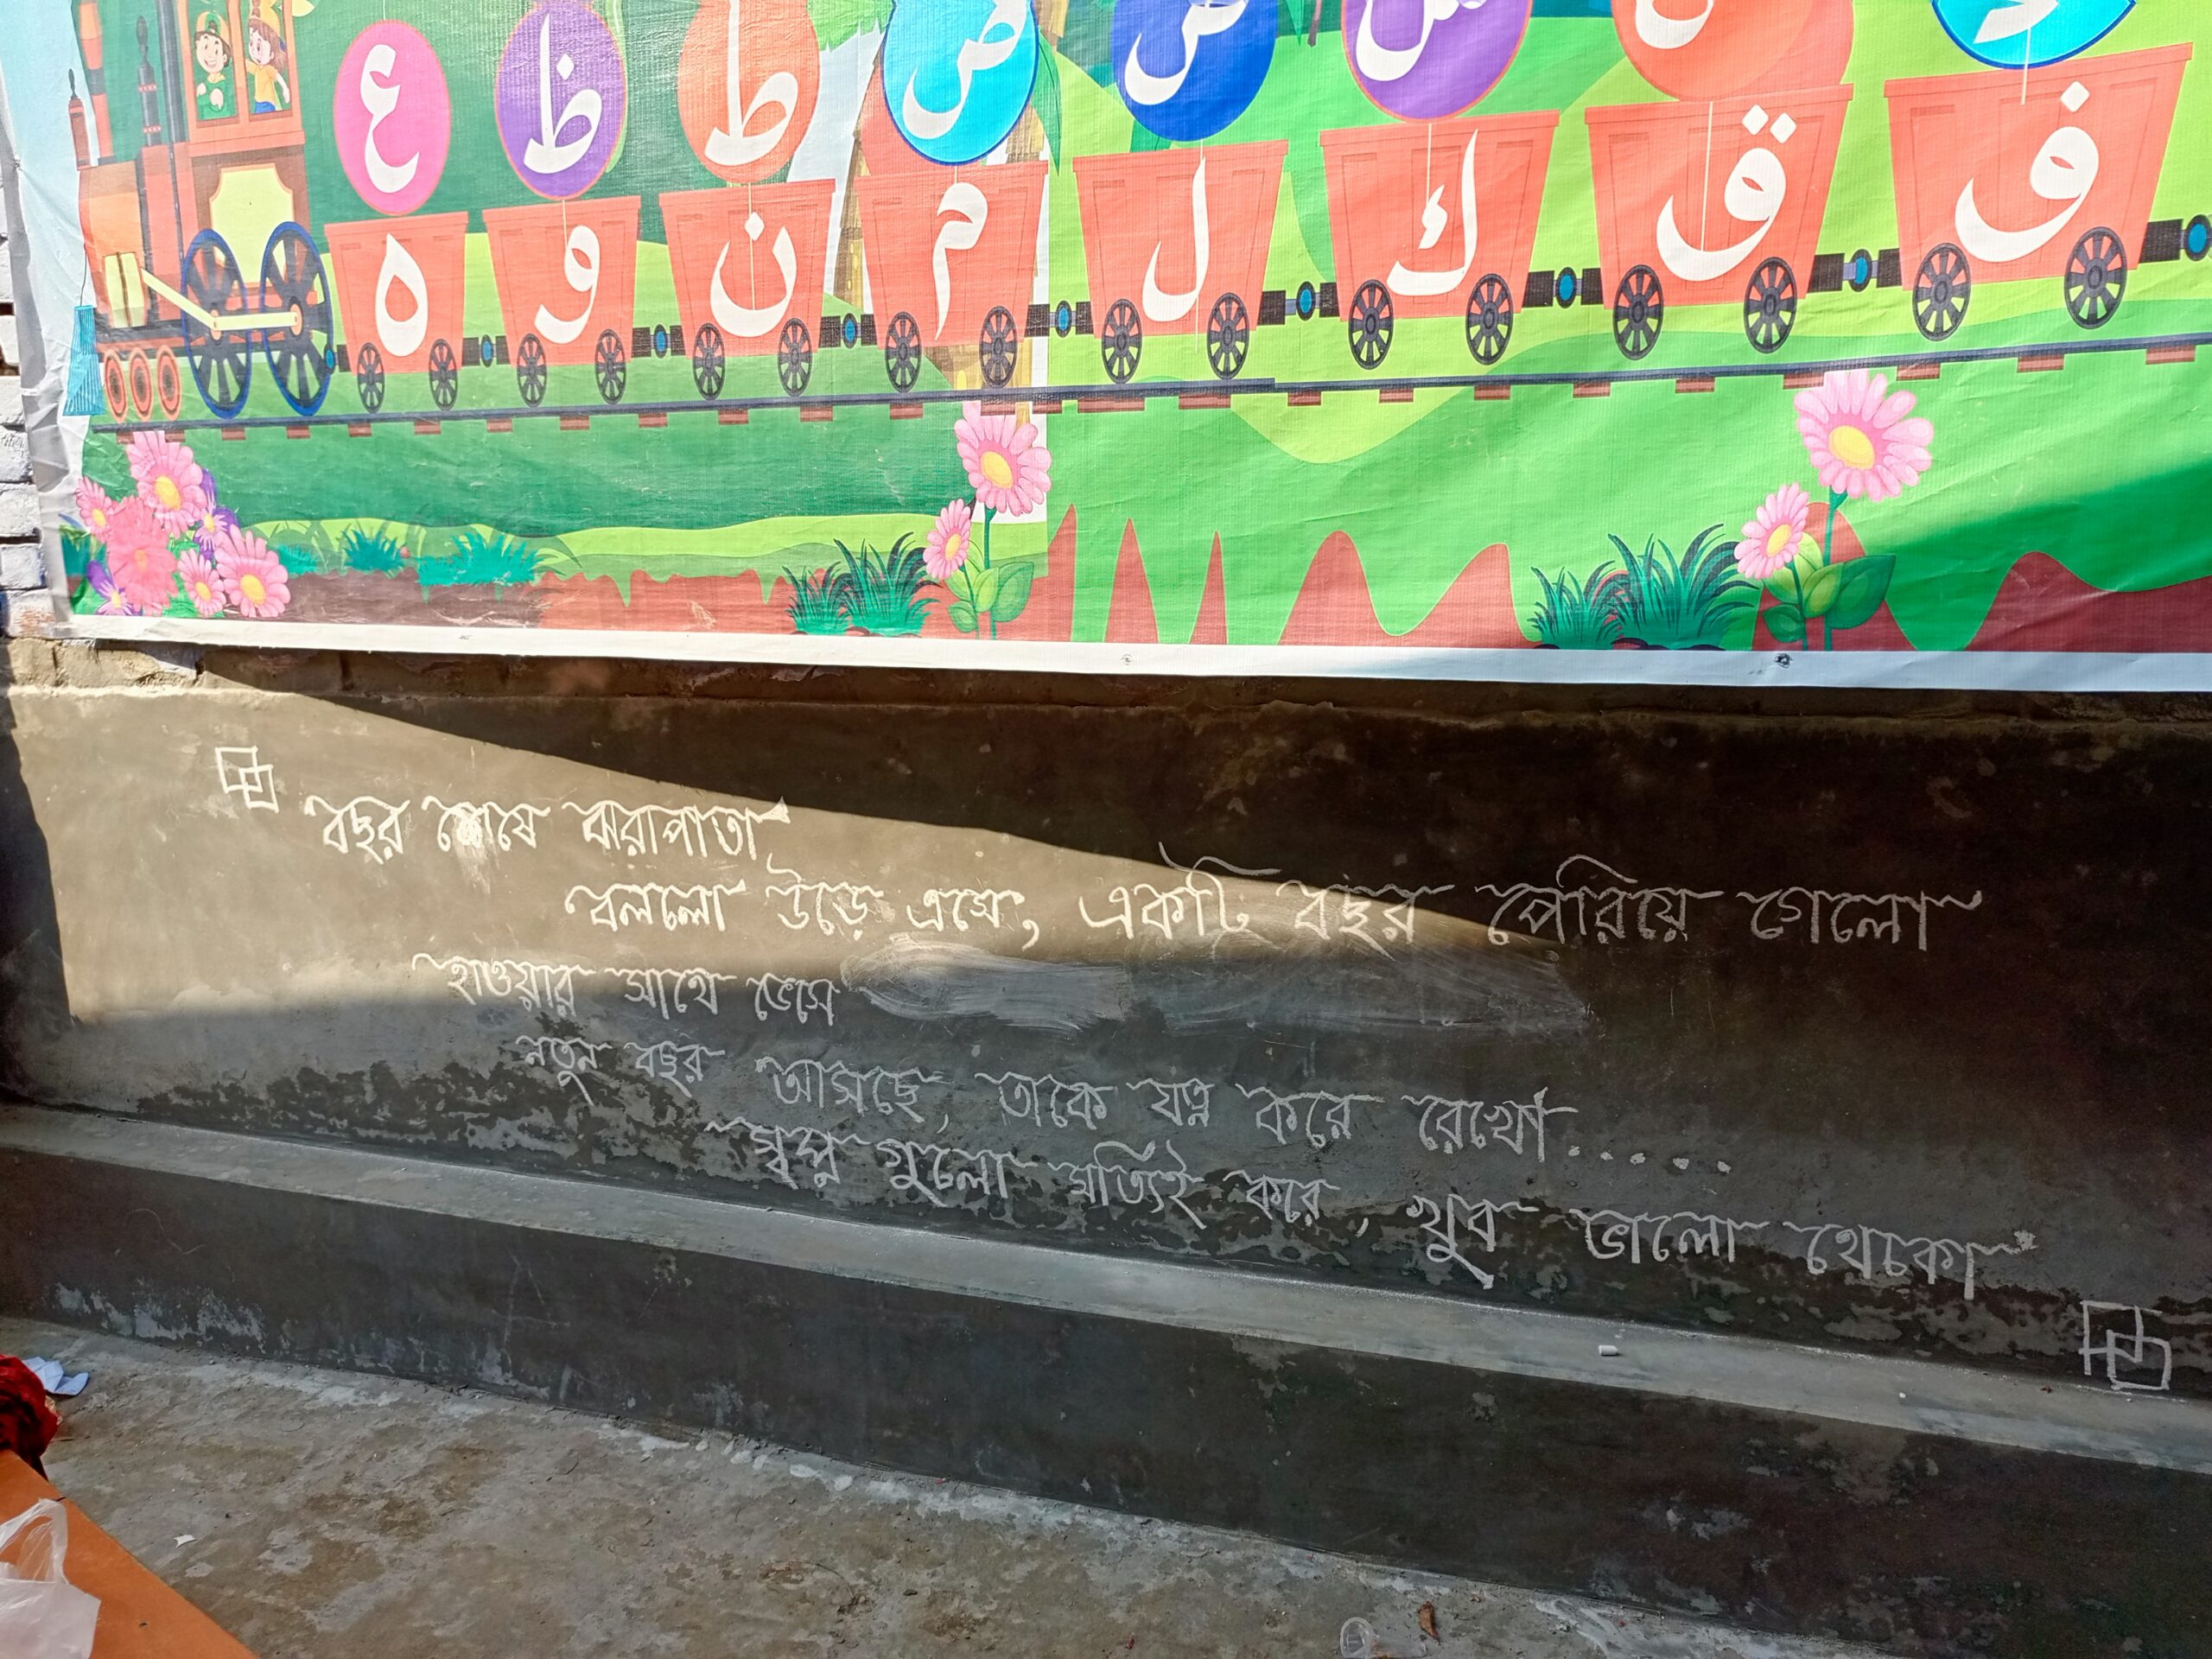 ع ظ ط ض ص ش س
ه و ن م ل ك ق ف
বছর শেষে ঝরাপাতা
বললো উড়ে এসে, একটি বছর পেরিয়ে গেলো
হাওয়ার সাথে ভেসে
নতুন বছর আসছে, তাকে যত্ন করে রেখো......
স্বপ্ন গুলো সত্যিই করে, খুব ভালো থেকো